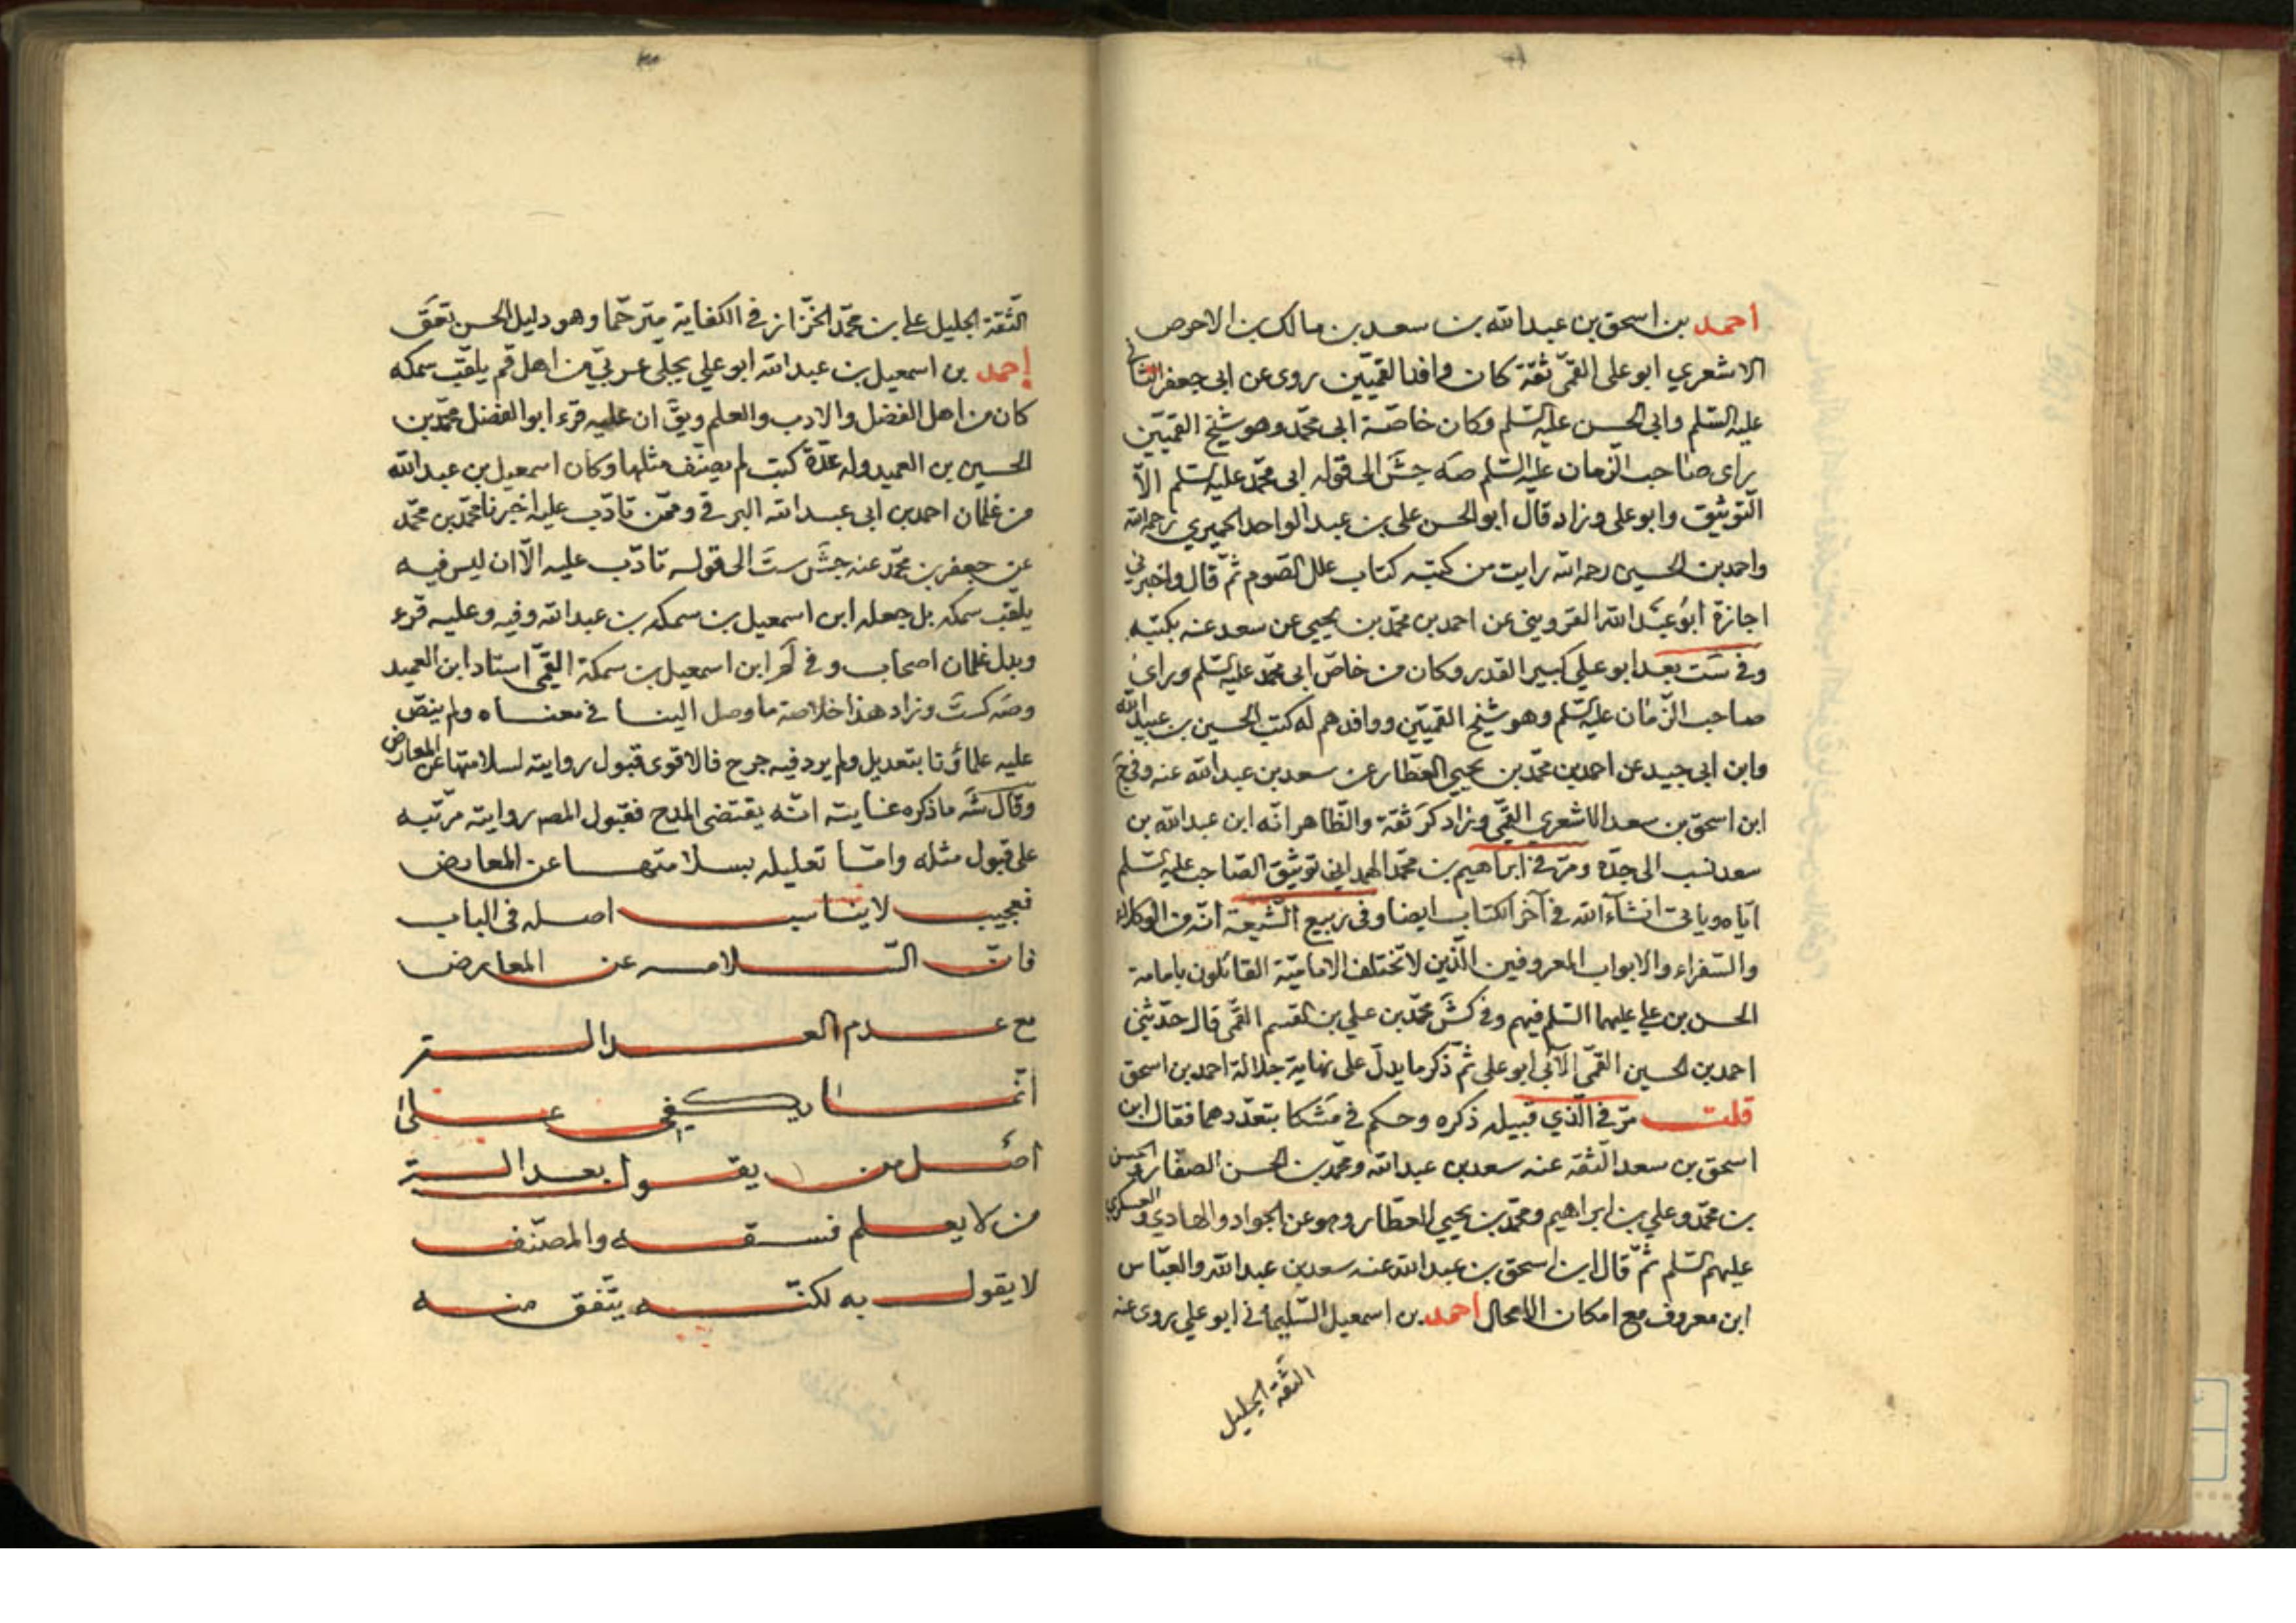 احمد بن اسحق بن عبدالله بن سعد بن مالك بن الاحوص
الاشعري ابو علي القمّي ثقة كان وافد القميّين روى عن ابي جعفر الثاني
عليه السّلم وابي الحسن عليه السّلم وكان خاصّة ابي محمّد وهو شيخ القميّين
راى صاحب الزمان عليه السّلم صَه جشَ الى قوله ابي محمّد عليه السّلم الّا
التوثيق وابو علي وزاد قال ابو الحسن علي بن عبد الواحد الحميري رحمه الله
واحمد بن الحسين رحمه الله رايت من كتبه كتاب علل الصّوم ثمّ قال واخبرني
اجازة ابو عبد الله القزويني عن احمد بن محمّد بن يحيى عن سعد عنه بكتبه
وفي ستَ بعد ابو علي كبير القدر وكان من خاصّ ابي محمّد عليه السّلم وراى
صاحب الزّمان عليه السّلم وهو شيخ القميّين ووافدهم له كتب الحسين بن عبيد الله
وابن ابي جيد عن احمد بن محمّد بن يحيى العطار عن سعد بن عبد الله عنه وفي جَ
ابن اسحق بن سعد الاشعري القمّي وزاد كرَ ثقة والظّاهر انّه ابن عبد الله بن
سعد نسب الى جدّه ومرّ في ابراهيم بن محمّد الهمداني توثيق الصّاحب عليه السّلم
ايّاه وياتي انشآء الله في آخر الكتاب ايضا وفي ربيع الشّيعة انّه من الوكلاء
والسّفراء والابواب المعروفين الّذين لا تختلف الاماميّة القائلون بامامة
الحسن بن علي عليهما السّلم فيهم وفي كشَ محمّد بن علي بن القسم القمّي قال حدّثني
احمد بن الحسين القمّي الآبي ابو علي ثمّ ذكر ما يدلّ على نهاية جلالة احمد بن اسحق
قلت مرّ في الّذي قبيله ذكره وحكم في مشكا بتعدّدهما فقال ابن
اسحق بن سعد الثقة عنه سعد بن عبد الله ومحمّد بن الحسن الصفّار والحسن
بن محمّد وعلي بن ابراهيم ومحمّد بن يحيى العطار وهو عن الجواد والهادي والعسكري
عليهم السّلم ثمّ قال ابن اسحق بن عبد الله عنه سعد بن عبد الله والعبّاس
ابن معروف مع امكان الاتحاد احمد بن اسمعيل السّليماني ابو علي يروي عنه
الثقة الجليل
الثّقة الجليل علي بن محمّد الخزّاز في الكفاية مترحّما وهو دليل الحسن تعَق
احمد بن اسمعيل بن عبد الله ابو علي بجلي عربيّ من اهل قم يلقّب سمكه
كان من اهل الفضل والادب والعلم ويقَ ان عليه قرء ابو الفضل محمّد بن
الحسين بن العميد وله عدّة كتب لم يصنّف مثلها وكان اسمعيل بن عبد الله
من غلمان احمد بن ابي عبد الله البرقي وممّن تادّب عليه اخبرنا محمّد بن محمّد
عن جعفر بن محمّد عنه جشَ ستَ الى قوله تادّب عليه الّا ان ليس فيه
يلقّب سمكه بل جعله ابن اسمعيل بن سمكه بن عبد الله وفيه وعليه قرء
وبدل غلمان اصحاب وفي لمَ ابن اسمعيل بن سمكة القمّي استاد ابن العميد
وصَه كستَ وزاد هذا خلاصة ما وصل الينا في معناه ولم ينصّ
عليه علماؤنا بتعديل ولم يرد فيه جرح فالاقوى قبول روايته لسلامتها عن المعارض
وقال شَه ما ذكره غايته انّه يقتضي المدح فقبول المصَ روايته مرتّبه
على قبول مثله وامّا تعليله بسلامتها عن المعارض
فعجيب لا يناسب اصله في الباب
فانّ السّلامه عن المعارض
مع عدم العدالة
انّما يكفي على
اصل من يقول بعدالة
من لا يعلم فسقه والمصنّف
لا يقول به لكنّه يتّفق منه